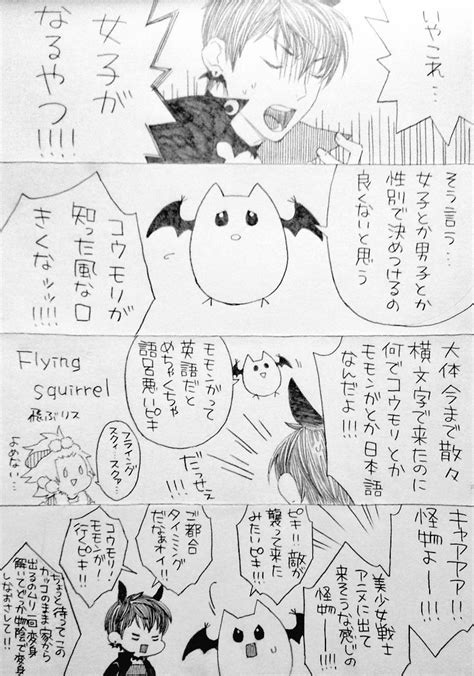 いやこれ…
…
女子が
なるやつ!!!!
そう言う…
女子とか男子とか
性別で決めつけるの
良くないと思う
コウモリが
知った風な口
きくなッ!!!!
大体今まで散々
横文字で来たのに
何でコウモリとか
モモンガとか日本語
なんだよ!!!
モモンガって
英語だと
めちゃくちゃ
語呂悪いピキ
だっせえ
Flying
squirrel
飛ぶリス
フライング
スクィ…スクァ…
よめない…
キャアアア!!
怪物よー!!!!
美少女戦士
アニメに出て
来そうな感じの
怪物ー!!!!
ピキ!!敵が
襲って来た
みたいピキ!!!
ご都合
タイミング
だなァオイ!!
コウモリ!
モモンが!
行ピキ!!!
ちょっと待ってこの
カッコのまま家から
出るのムリ一回変身
解いてどっか物陰で変身
しなおさして!!